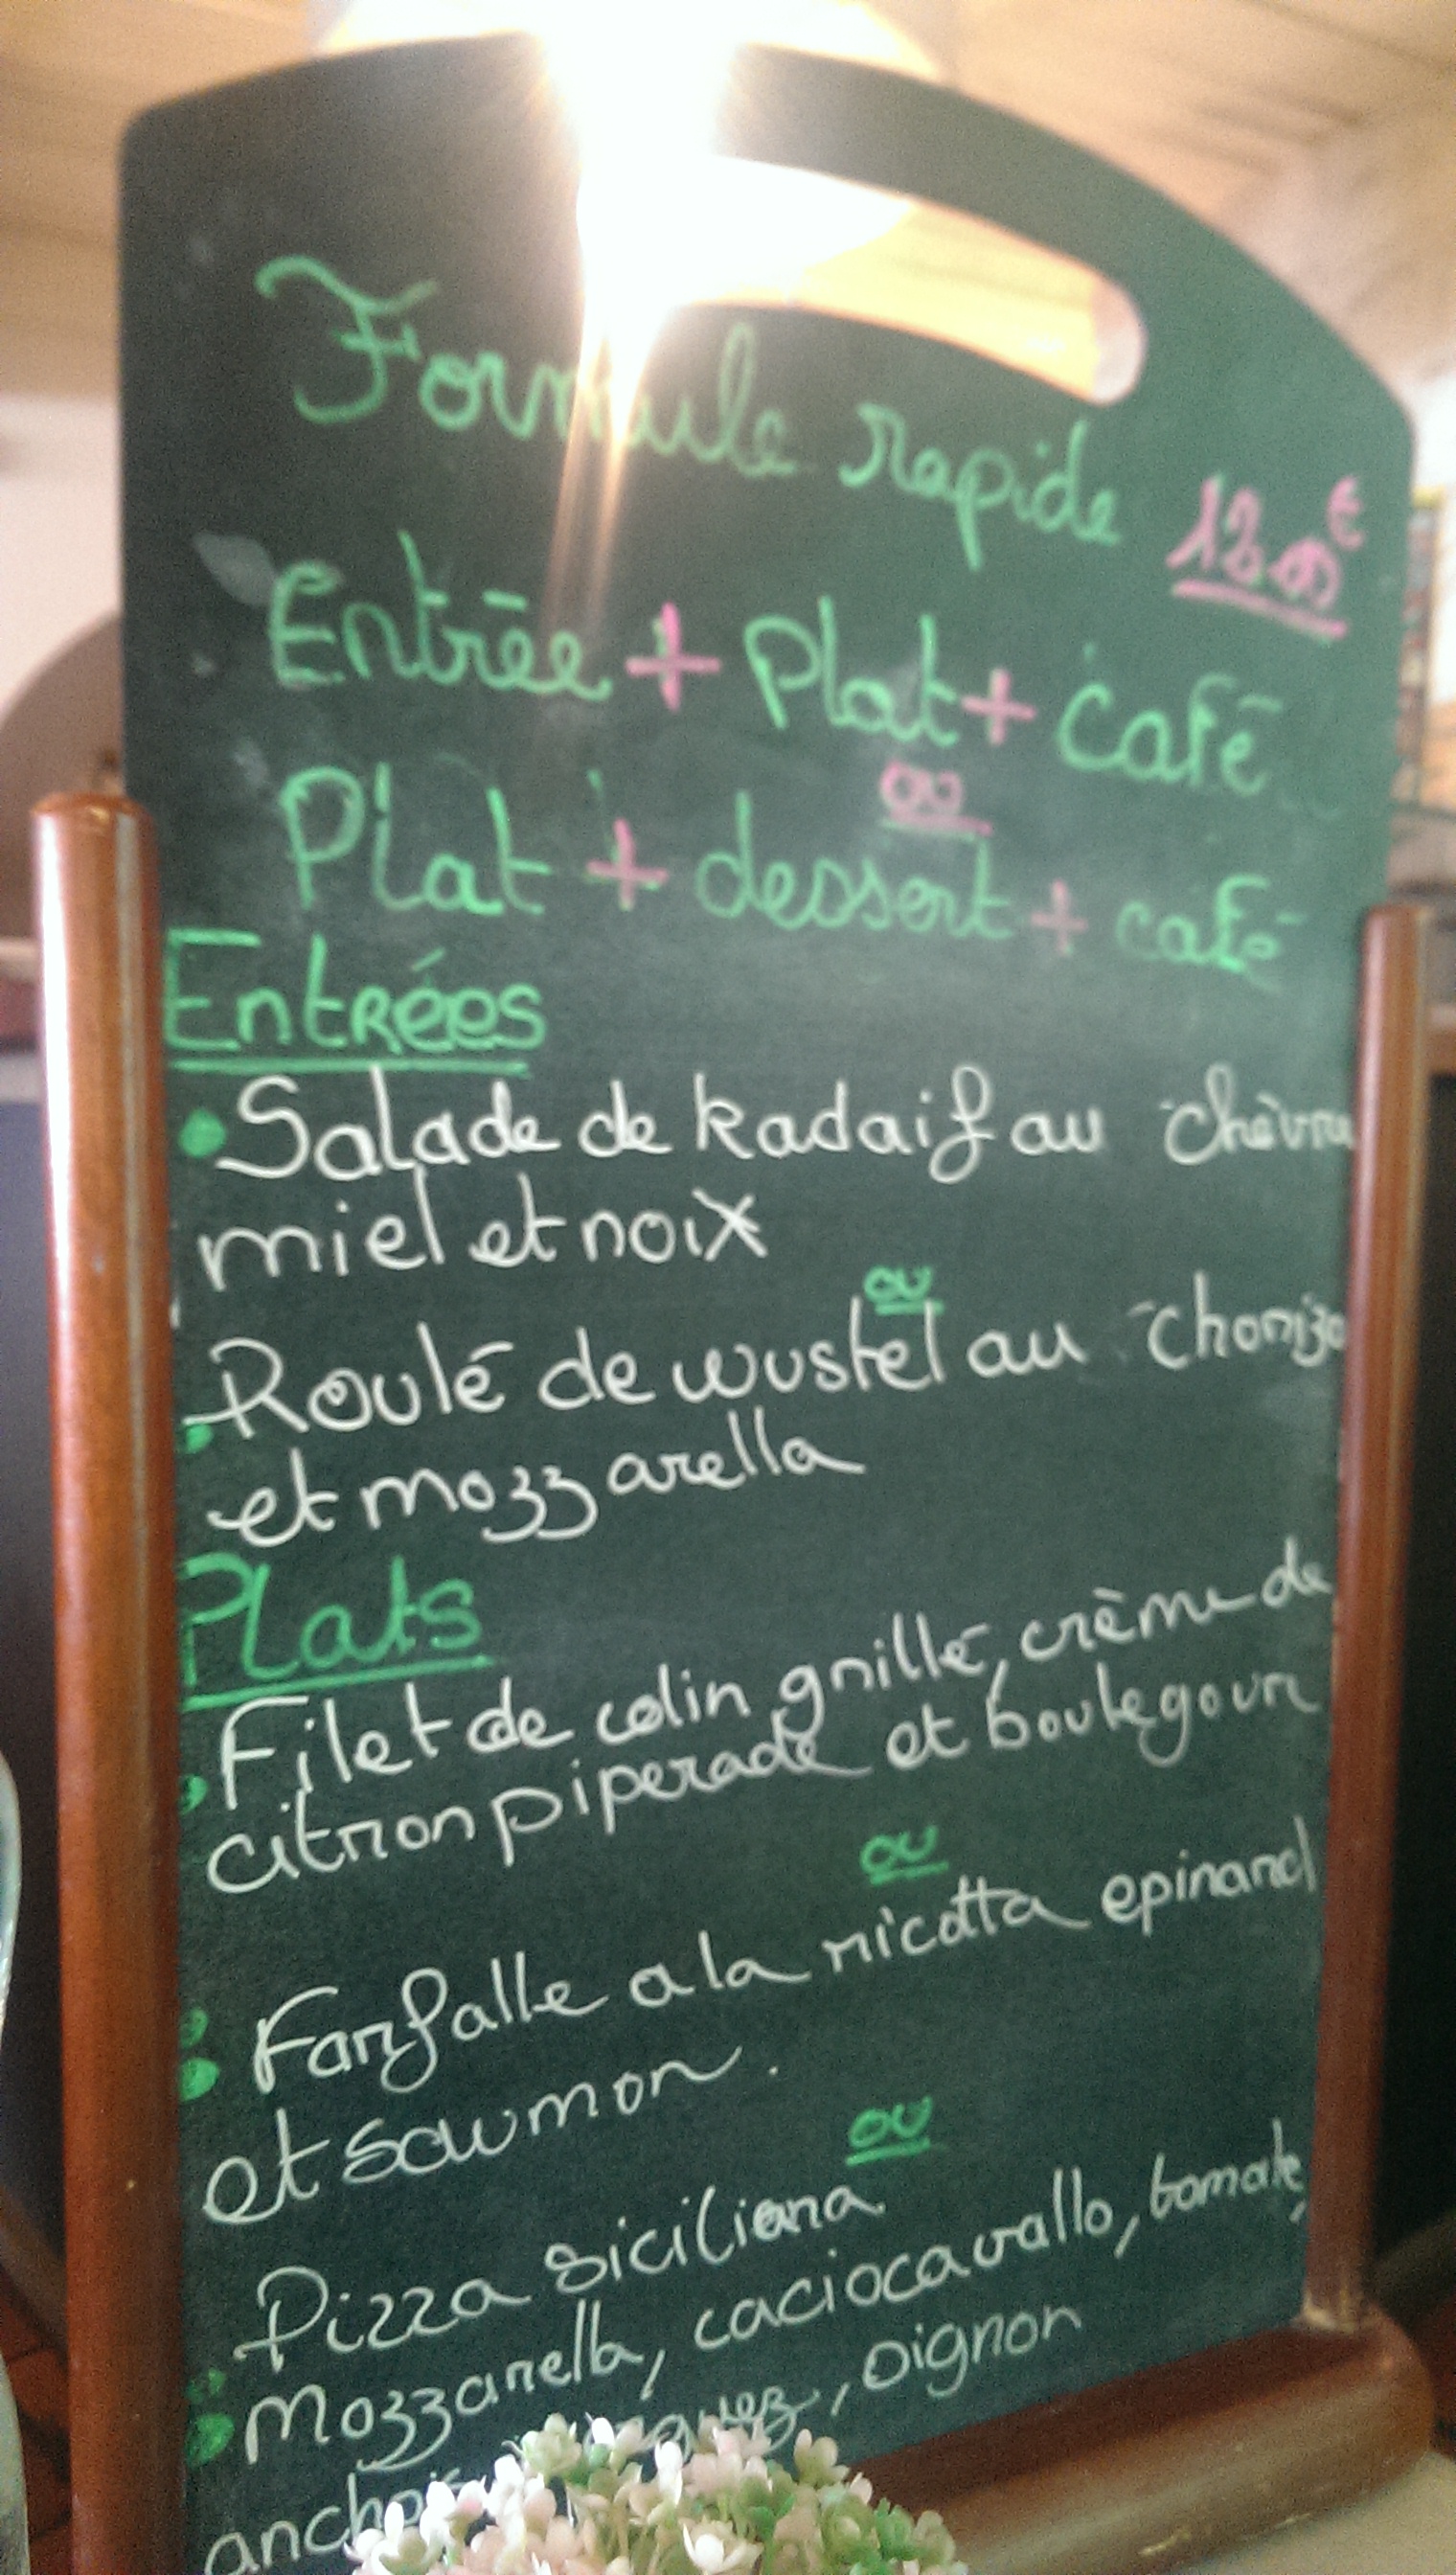 Formule rapide
Entrée + Plat + café
ou
Plat + dessert + café
Entrées
Salade de kadaif au chèvre
miel et noix
ou
Roulé de wustel au chorizo
et mozzarella
Plats
Filet de colin grillé, crème de
citron piperade et boulegour
ou
Farfalle a la ricotta epinard
et saumon.
ou
Pizza siciliana
Mozzarella, caciocavallo, tomate,
anchois , oignon